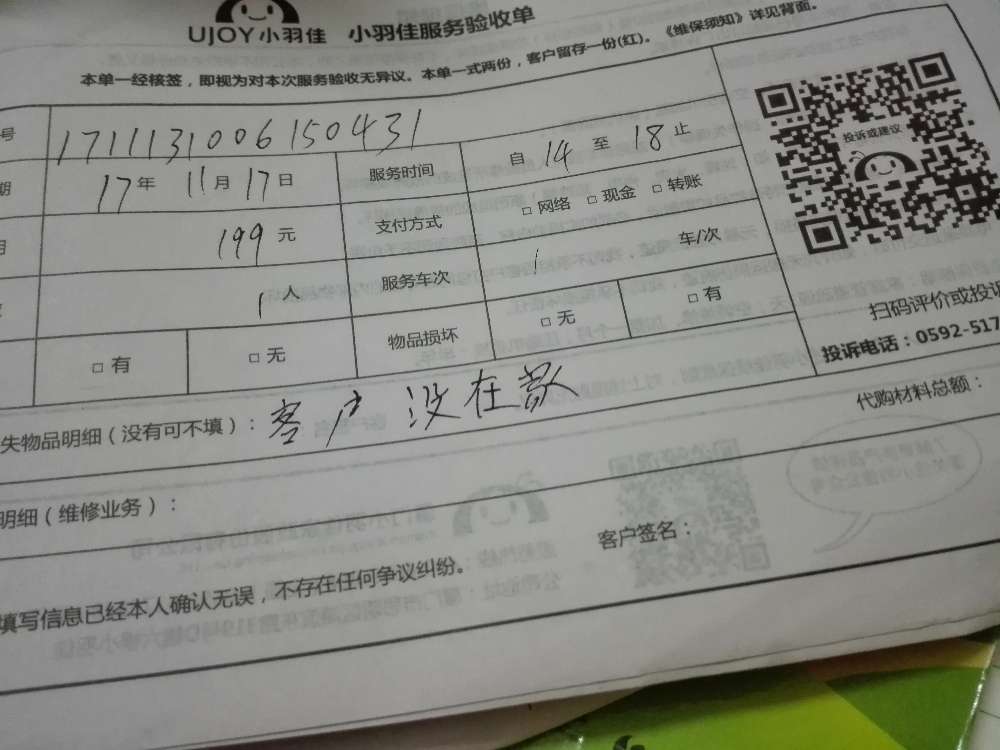 UJOY小羽佳 小羽佳服务验收单
本单一经核签，即视为对本次服务验收无异议。本单一式两份，客户留存一份(红)。《维保须知》详见背面。
号 1711131006150431
期 17年 11月 17日 服务时间 自 14 至 18 止
199 元 支付方式 □ 网络 □ 现金 □ 转账
1 人 服务车次 1 车/次
□ 有 □ 无 物品损坏 □ 无 □ 有
投诉或建议
扫码评价或投诉
投诉电话：0592-517
失物品明细（没有可不填）： 客户 没在家
代购材料总额：
明细（维修业务）：
客户签名：
填写信息已经本人确认无误，不存在任何争议纠纷。